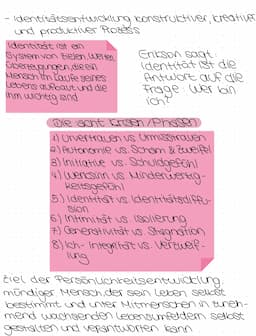 - Identitätsentwicklung konstruktiver, kreativer
und produktiver Prozess
Identität ist ein
System von Zielen, Werten,
Überzeugungen, die ein
Mensch im Laufe seines
Lebens aufbaut und die
ihm wichtig sind
Erikson sagt:
Identität ist die
Antwort auf die
Frage: Wer bin
ich?
Die acht Krisen / Phasen
1) Urvertrauen vs. Urmisstrauen
2) Autonomie vs. Scham & Zweifel
3) Initiative vs. Schuldgefühl
4) Werksinn vs. Minderwertig-
keitsgefühl
5) Identität vs. Identitätsdiffu-
sion
6) Intimität vs. Isolierung
7) Generativität vs. Stagnation
8) Ich-Integrität vs. Verzweif-
lung
Ziel der Persönlichkeitsentwicklung:
mündiger Mensch, der sein Leben selbst
bestimmt und unter Mitmenschen in zuneh-
mend wachsenden Lebensumfeldern selbst
gestalten und verantworten kann